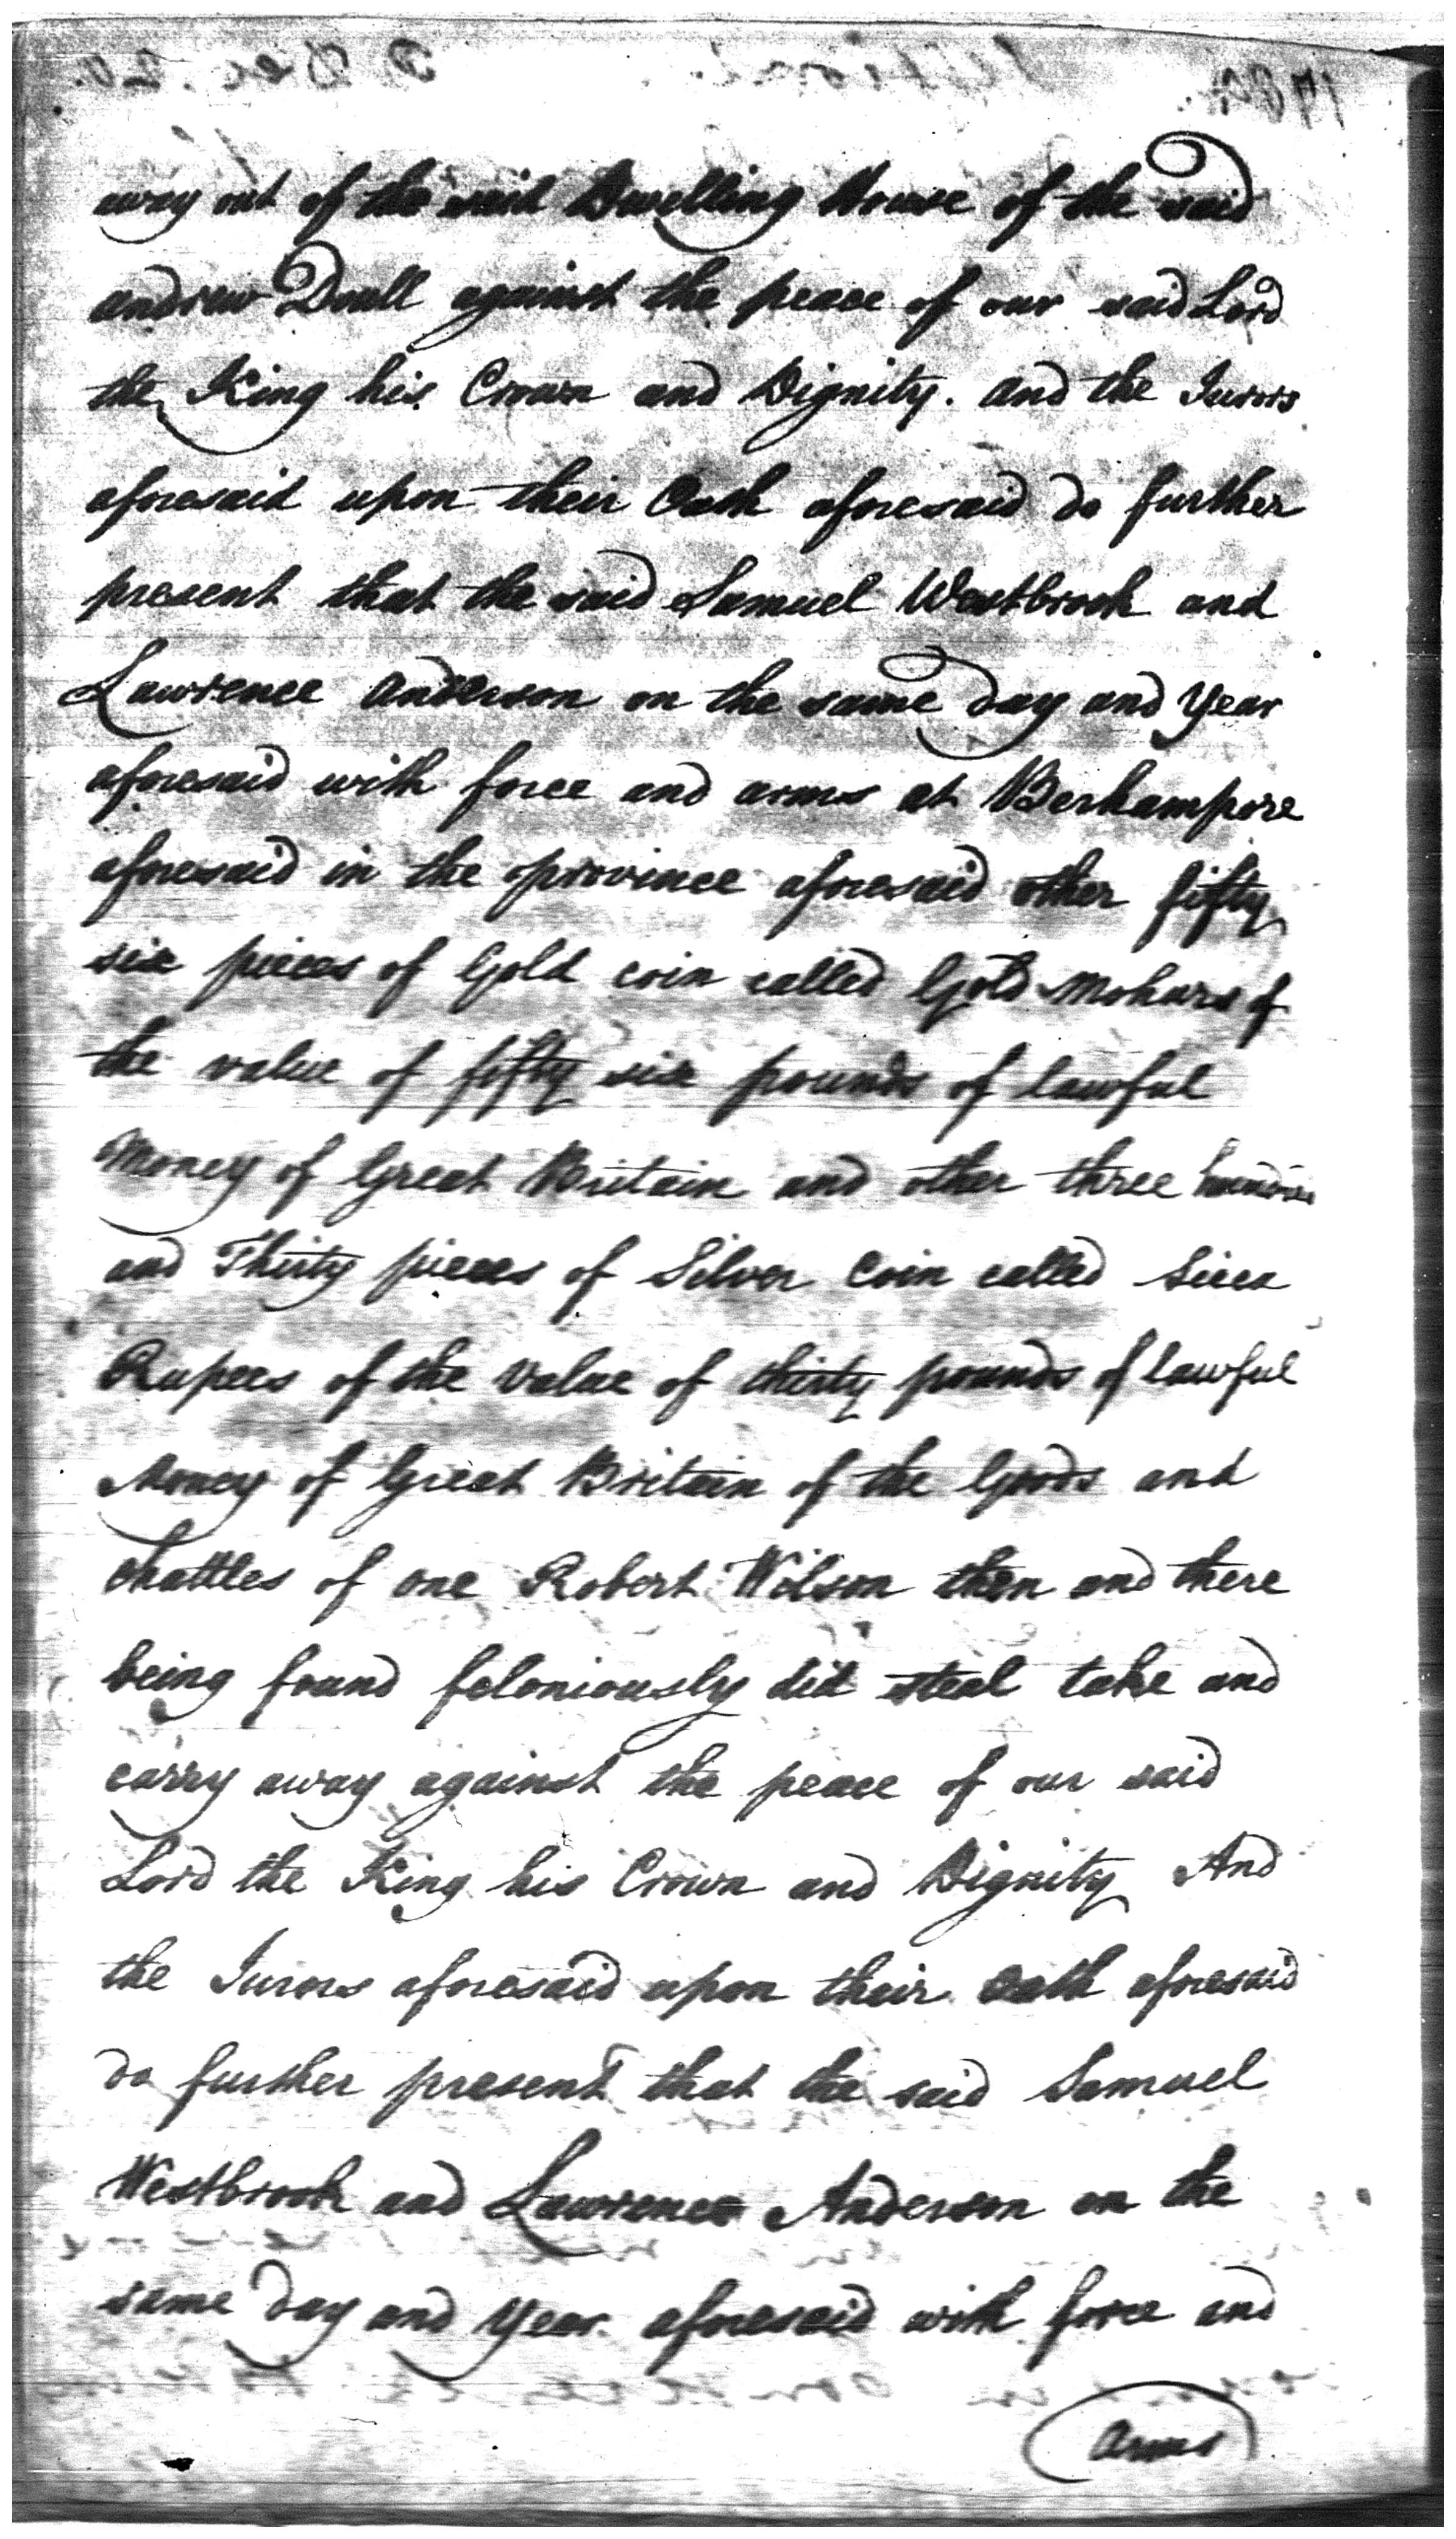 away out of the said Dwelling House of the said
andrew Doull against the peace of our said Lord
the King his Crown and Dignity. and the Jurors
aforesaid upon their Oath aforesaid do further
present that the said Samuel Westbrook and
Lawrence anderson on the same day and Year
aforesaid with force and arms at Berhampore
aforesaid in the province aforesaid other fifty
six pieces of Gold coin called Gold Mohurs of
the value of fifty six pounds of lawful
Money of Great Britain and other three hundred
and Thirty pieces of Silver Coin called Sicca
Rupees of the Value of thirty pounds of lawful
Money of Great Britain of the Goods and
chattles of one Robert Wilson then and there
being found feloniously did steal take and
carry away against the peace of our said
Lord the King his Crown and Dignity And
the Jurors aforesaid upon their oath aforesaid
do further present that the said Samuel
Westbrook and Lawrence Anderson on the
same day and Year aforesaid with force and
arms